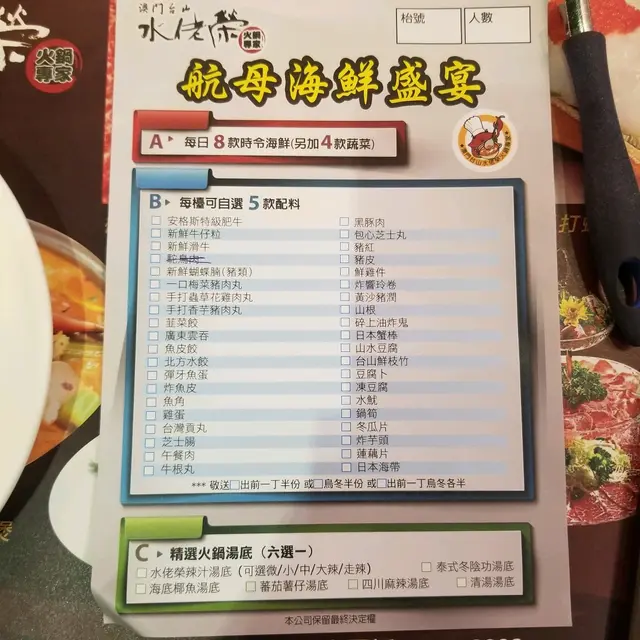 澳門台山
水佬榮 火鍋專家
枱號 人數
航母海鮮盛宴
A 每日8款時令海鮮(另加4款蔬菜)
B 每檯可自選5款配料
安格斯特級肥牛
新鮮牛仔粒
新鮮滑牛
鴕鳥肉
新鮮蝴蝶腩(豬類)
一口梅菜豬肉丸
手打蟲草花雞肉丸
手打香芋豬肉丸
韮菜餃
廣東雲吞
魚皮餃
北方水餃
彈牙魚蛋
炸魚皮
魚角
雞蛋
台灣貢丸
芝士腸
午餐肉
牛根丸
黑豚肉
包心芝士丸
豬紅
豬皮
鮮雞件
炸響玲卷
黃沙豬潤
山根
碎上油炸鬼
日本蟹棒
山水豆腐
台山鮮枝竹
豆腐卜
凍豆腐
水魷
鍋筍
冬瓜片
炸芋頭
蓮藕片
日本海帶
*** 敬送 出前一丁半份 或 烏冬半份 或 出前一丁烏冬各半
C 精選火鍋湯底（六選一）
水佬榮辣汁湯底 (可選微/小/中/大辣/走辣) 泰式冬陰功湯底
海底椰魚湯底 蕃茄薯仔湯底 四川麻辣湯底 清湯湯底
本公司保留最終決定權
火鍋專家
打